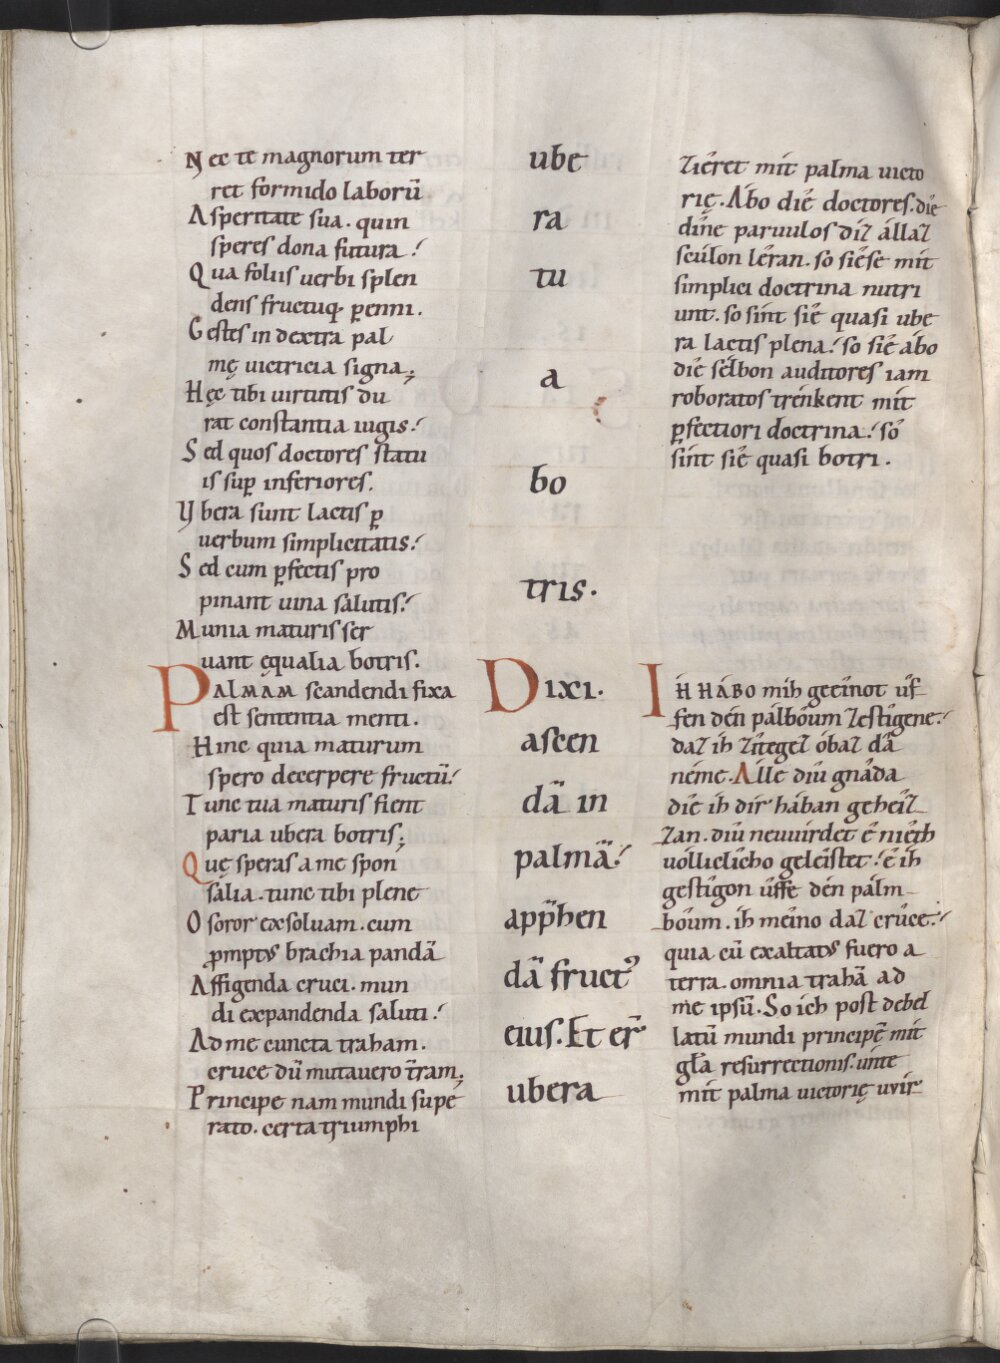 Nec te magnorum ter
ret formido laborū
Asperitate sua. quin
speres dona futura.
Qua foliis uerbi splen
dens fructuq; ꝑenni.
Gestes in dextra pal
mę uictricia signa;
Hęc tibi uirtutis du
rat constantia iugis.
Sed quos doctores statu
is suꝑ inferiores.
Vbera sunt lactis ꝑ
uerbum simplicitatis.
Sed cum ꝑfectis pro
pinant uina salutis.
Munia maturis ser
uant ęqualia botris.
PALMAM scandendi fixa
est sententia menti.
Hinc quia maturum
spero decerpere fructū.
Tunc tua maturis fient
paria ubera botris;
Quę speras a me spon
salia. tunc tibi plene
O soror exsoluam. cum
p̄mptꝰ brachia pandā
Affigenda cruci. mun
di expandenda saluti.
Ad me cuncta traham.
cruce dū mutauero t̄ram;
Principe nam mundi supe
rato. certa triumphi
ube
ra
tu
a
bo
tris.
Dixi.
ascen
dā in
palmā.
app̄hen
dā fructꝰ
eius. Et er̄
ubera
zieret mit palma uicto
rię. Ábo diê doctores. diê
dîne paruulos diz állaz
scúlon lêran. so siêse mit
simplici doctrina nutri
unt. so sint siê quasi ube
ra lactis plena. so siê ábo
diê sélbon auditores iam
roboratos trénkent mit
ꝑfectiori doctrina. sô
sint siê quasi botri.
IH HÁBO mih geêinot ûf
fen dén pálboûm zestîgene.
daz ih zîtegez óbaz dâ
néme. Álle diû gnâda
diê ih dir hában gehêiz
zan. diû neuuirdet ê niêth
uóllîclîcho geleîstet. ê ih
gestîgon ûffe dén pálm
boûm. ih mêino daz crûce.
quia cū exaltatꝰ fuero a
terra. omnia trahā ad
me ipsū. So ich post debel
latū mundi principē mit
gl̄a resurrectionis. unte
mit palma uictorię uvir